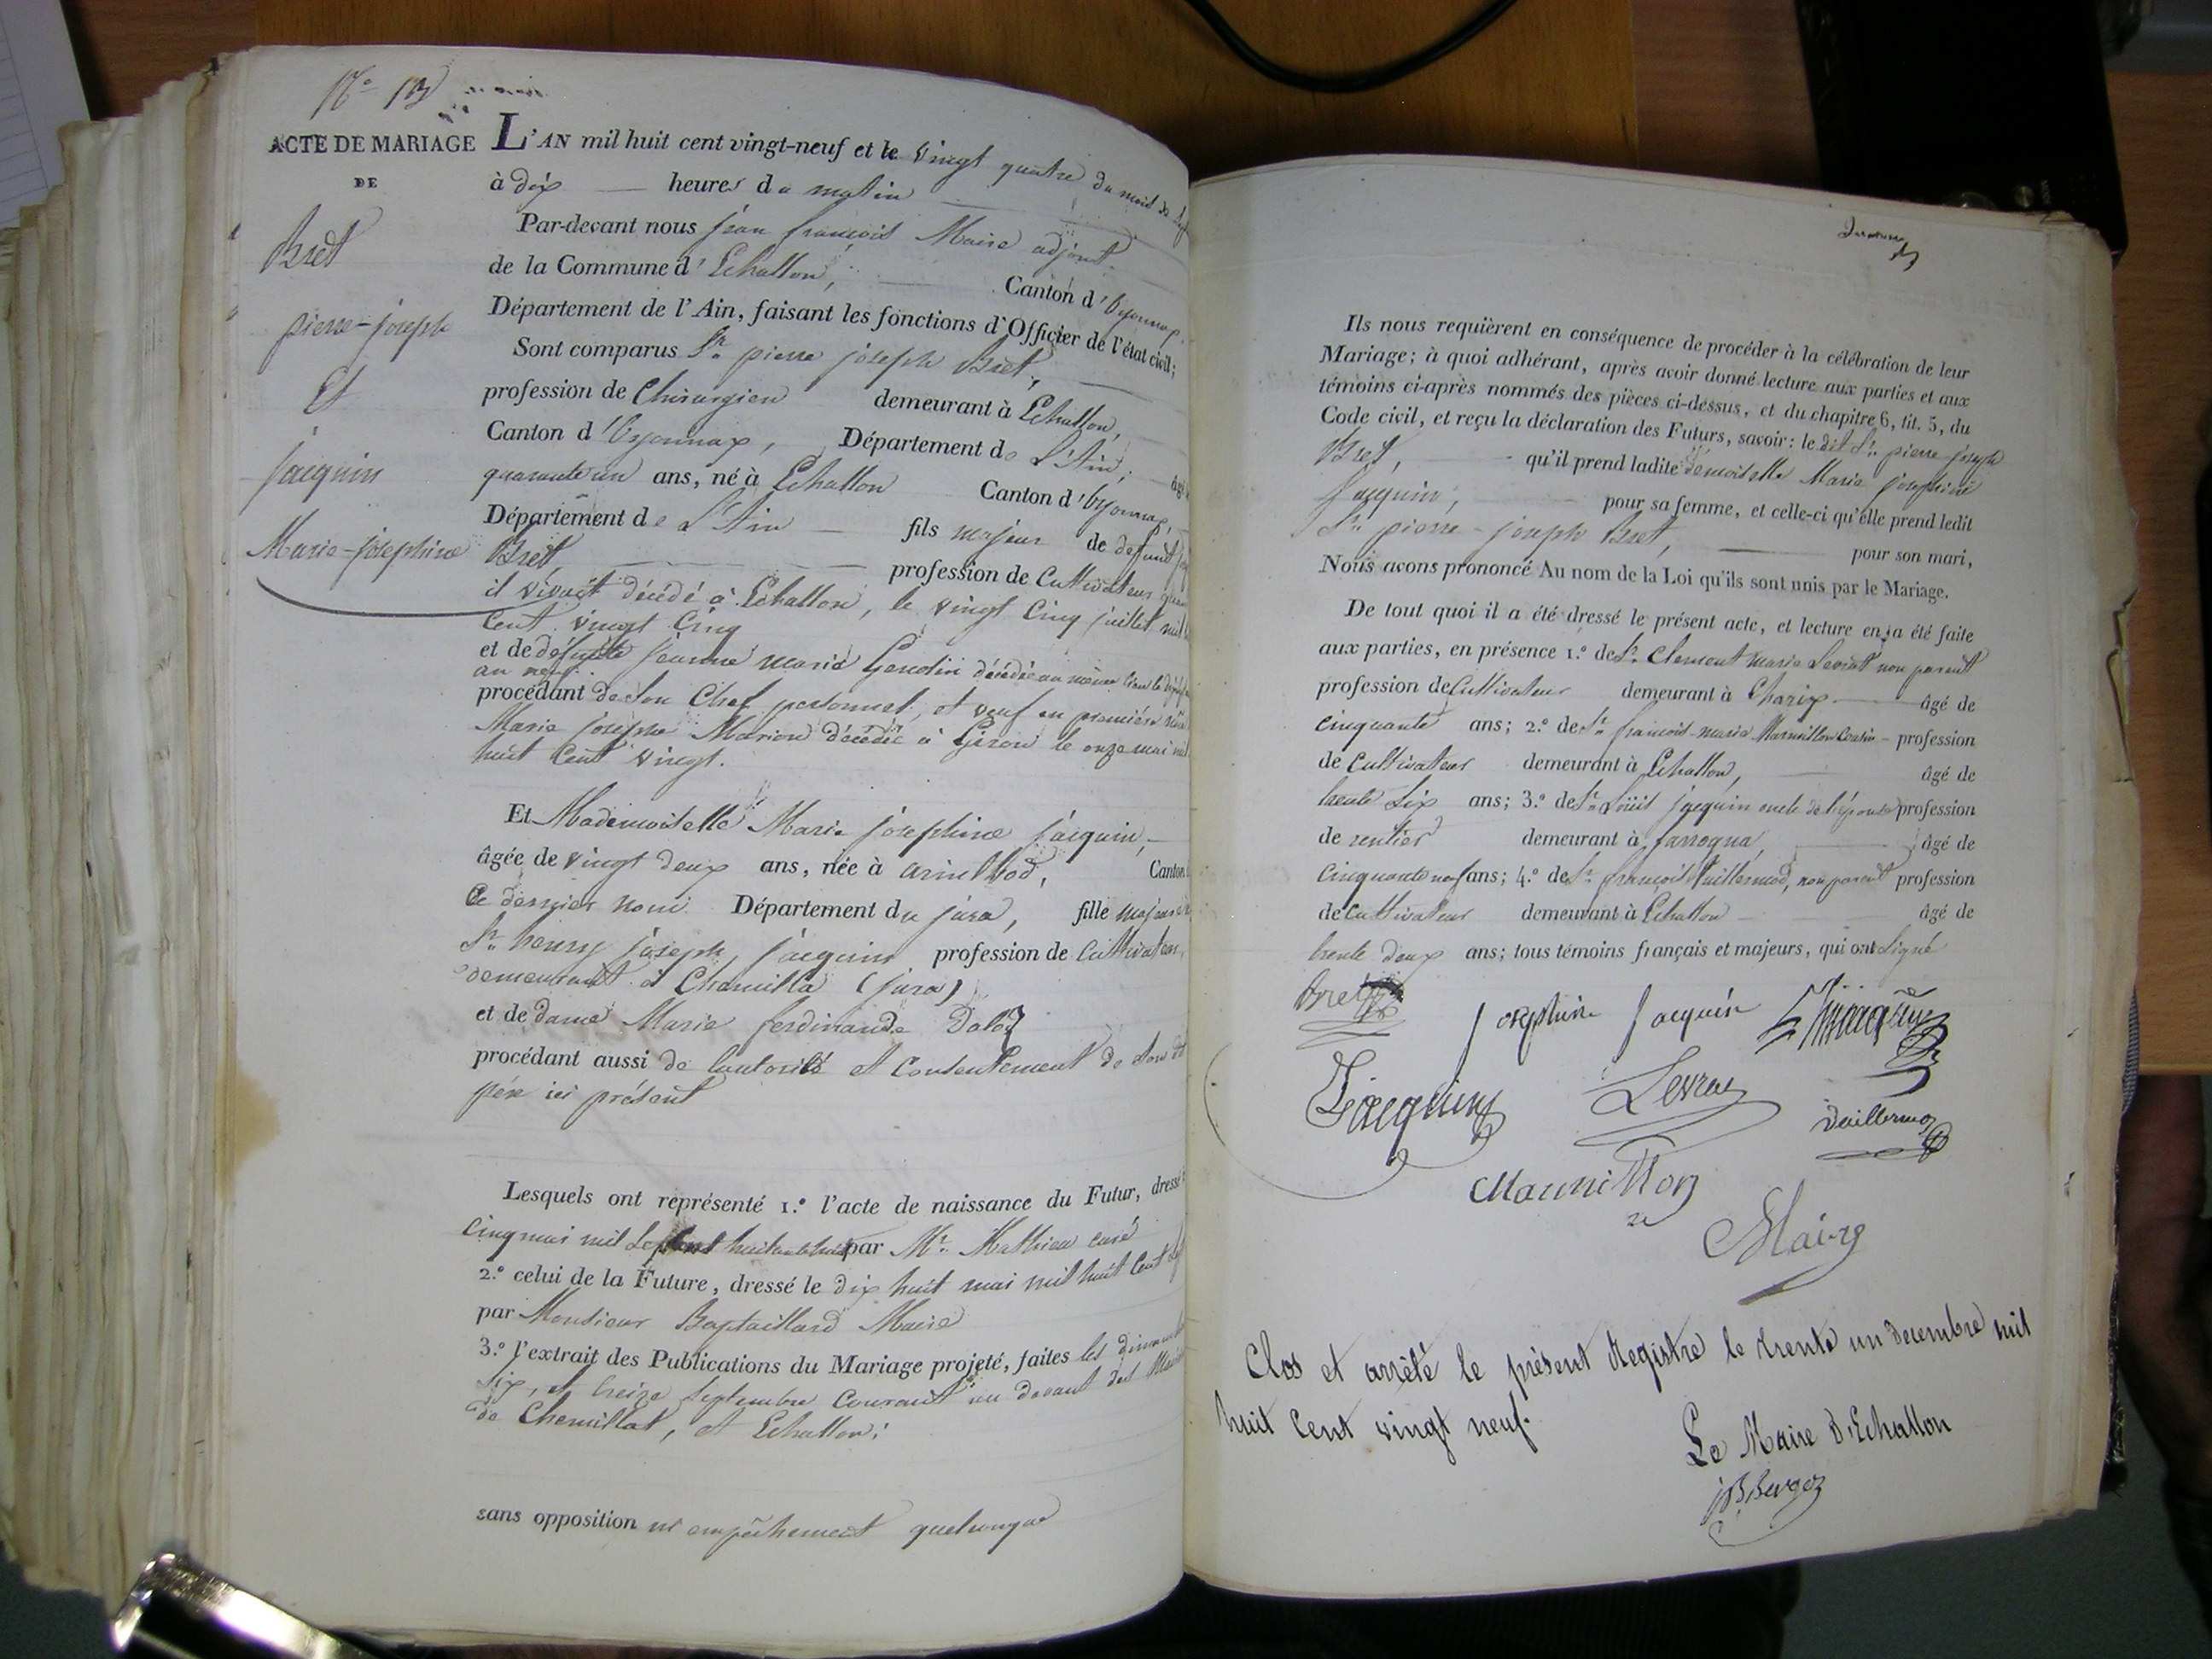 N° 13
ACTE DE MARIAGE
DE
Bret
pierre-joseph
Et
jacquin
Marie-josephine
L'AN mil huit cent vingt-neuf et le vingt quatre du mois de
à dix heures du matin
Par-devant nous jean francois Maire adjoint
de la Commune d'Echallon, Canton d'Oyonnax
Département de l'Ain, faisant les fonctions d'Officier de l'état civil;
Sont comparus Sr. pierre joseph Bret,
profession de Chirurgien demeurant à Echallon,
Canton d'Oyonnax, Département de L'Ain, âgé
quarante un ans, né à Echallon Canton d'Oyonnax,
Département de L'Ain fils majeur de defunt
Bret, profession de Cultivateur quand
il vivait décédé à Echallon, le vingt Cinq juillet mil
Cent vingt Cinq
et de défunte jeanne maria Gendin décédée au même lieu le
an neuf.
procédant de Son Chef personnel, et veuf en première
Marie josephe Marion décédée à Giron le onze mai mil
huit Cent vingt.
Et Mademoiselle Marie josephine jacquin,
âgée de vingt deux ans, née à arinthod, Canton
Ce dernier nom Département du jura, fille majeure
Sr. henry joseph jacquin profession de Cultivateur,
demeurant à Chemilla (jura)
et de dame Marie ferdinande Daloz
procédant aussi de l'autorité et Consentement de Son dit
père ici présent
Lesquels ont représenté 1.° l'acte de naissance du Futur, dressé
Cinq mai mil Sept cent huitante huit par Mr. Mathieu curé
2.° celui de la Future, dressé le dix huit mai mil huit Cent
par Monsieur Baptaillard Maire
3.° l'extrait des Publications du Mariage projeté, faites les
Six, et treize Septembre Courant au devant des
de Chemillat, et Echallon;
sans opposition ni empêchement quelconque
Ils nous requièrent en conséquence de procéder à la célébration de leur
Mariage; à quoi adhérant, après avoir donné lecture aux parties et aux
témoins ci-après nommés des pièces ci-dessus, et du chapitre 6, tit. 5, du
Code civil, et reçu la déclaration des Futurs, savoir: le dit Sr. pierre joseph
Bret, qu'il prend ladite demoiselle Marie josephine
jacquin, pour sa femme, et celle-ci qu'elle prend ledit
Sr. pierre-joseph Bret, pour son mari,
Nous avons prononcé Au nom de la Loi qu'ils sont unis par le Mariage.
De tout quoi il a été dressé le présent acte, et lecture en a été faite
aux parties, en présence 1.° de Sr. Clement marie Levrat non parent
profession de Cultivateur demeurant à Charix âgé de
cinquante ans; 2.° de Sr. francois-maria Marmillon Cousin profession
de Cultivateur demeurant à Echallon, âgé de
trente Six ans; 3.° de Sr. Loüis jacquin oncle de l'épouse profession
de rentier demeurant à âgé de
Cinquante neuf ans; 4.° de Sr. françois Vuillermod, non parent profession
de Cultivateur demeurant à Echallon âgé de
trente deux ans; tous témoins français et majeurs, qui ont Signé
Bret
josephine jacquin
Jacquin
Levrat
Vuillermoz
Marmillon
Maire
Clos et arrêté le présent Registre le trente un decembre mil
huit Cent vingt neuf.
Le Maire d'Echallon